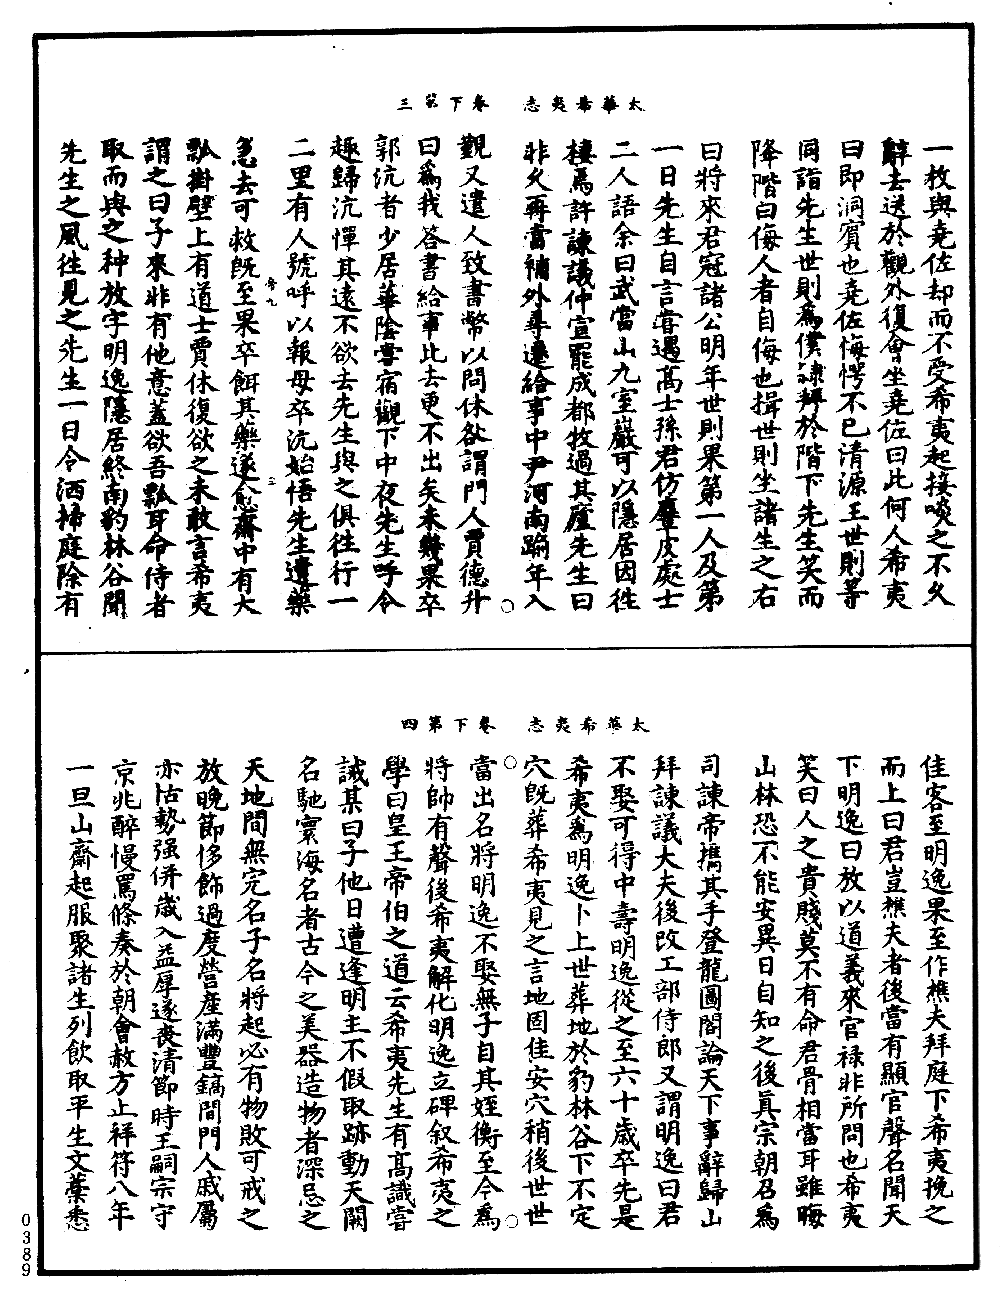 太華希夷志　卷下第三
一枚與堯佐却而不受希夷起接啖之不久
辭去送於觀外復會坐堯佐曰此何人希夷
曰即洞賓也堯佐悔愕不已清源王世則等
同詣先生世則爲僕隸拜於階下先生笑而
降階曰侮人者自侮也揖世則坐諸生之右
曰將來君冠諸公明年世則果第一人及第
一日先生自言嘗遇高士孫君仿麞皮處士
二人語余曰武當山九室巖可以隱居因往
棲焉許諫議仲宣罷成都牧過其廬先生曰
非久再當補外尋遷給事中尹河南踰年入
觀又遣人致書幣以問休咎謂門人賈德升
曰爲我答書給事比去更不出矣未幾果卒
郭沆者少居華陰嘗宿觀下中夜先生呼令
趣歸沆憚其遠不欲去先生與之俱往行一
二里有人號呼以報母卒沆始悟先生遺藥
急去可救旣至果卒餌其藥遂愈齋中有大
瓢掛壁上有道士賈休復欲之未敢言希夷
謂之曰子來非有他意蓋欲吾瓢耳命侍者
取而與之种放字明逸隱居終南豹林谷聞
先生之風往見之先生一日令洒掃庭除有
太華希夷志　卷下第四
佳客至明逸果至作樵夫拜庭下希夷挽之
而上曰君豈樵夫者後當有顯官聲名聞天
下明逸曰放以道義來官禄非所問也希夷
笑曰人之貴賤莫不有命君骨相當耳雖晦
山林恐不能安異日自知之後真宗朝召爲
司諫帝攜其手登龍圖閣論天下事辭歸山
拜諫議大夫後改工部侍郎又謂明逸曰君
不娶可得中壽明逸從之至六十歲卒先是
希夷爲明逸卜上世葬地於豹林谷下不定
穴旣葬希夷見之言地固佳安穴稍後世世
當出名將明逸不娶無子自其姪衡至今爲
將帥有聲後希夷解化明逸立碑叙希夷之
學曰皇王帝伯之道云希夷先生有高識嘗
誡某曰子他日遭逢明主不假取跡動天闕
名馳寰海名者古今之美器造物者深忌之
天地間無完名子名將起必有物敗可戒之
放晚節侈飾過度營産滿豐鎬間門人戚屬
亦怙勢强併歲入益厚遂喪清節時王嗣宗守
京兆醉慢罵條奏於朝會赦方止祥符八年
一旦山齋起服聚諸生列飲取平生文藁悉
0389